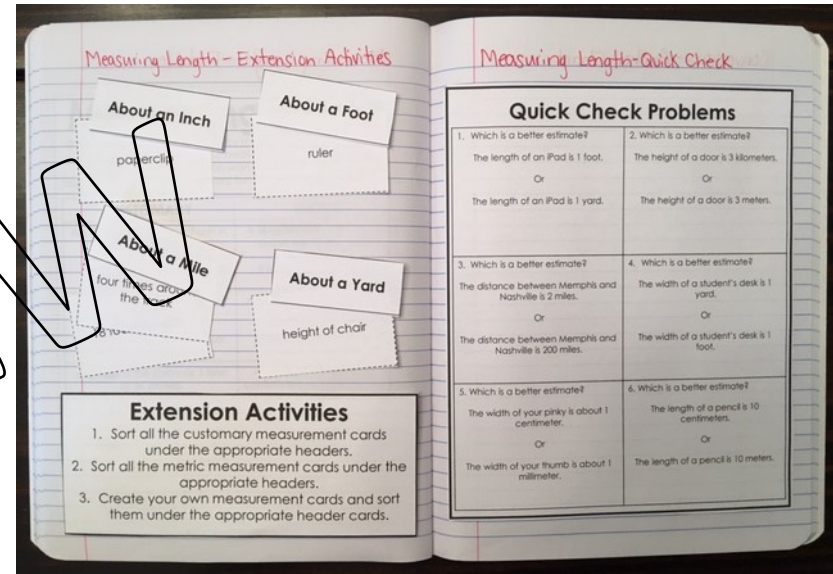 Measuring Length - Extension Activities
About an Inch
paperclip
About a Foot
ruler
About a Mile
four times around
the track
About a Yard
height of chair
Extension Activities
1. Sort all the customary measurement cards
under the appropriate headers.
2. Sort all the metric measurement cards under the
appropriate headers.
3. Create your own measurement cards and sort
them under the appropriate header cards.
Measuring Length-Quick Check
Quick Check Problems
1. Which is a better estimate?
The length of an iPad is 1 foot.
Or
The length of an iPad is 1 yard.
2. Which is a better estimate?
The height of a door is 3 kilometers.
Or
The height of a door is 3 meters.
3. Which is a better estimate?
The distance between Memphis and
Nashville is 2 miles.
Or
The distance between Memphis and
Nashville is 200 miles.
4. Which is a better estimate?
The width of a student's desk is 1
yard.
Or
The width of a student's desk is 1
foot.
5. Which is a better estimate?
The width of your pinky is about 1
centimeter.
Or
The width of your thumb is about 1
millimeter.
6. Which is a better estimate?
The length of a pencil is 10
centimeters.
Or
The length of a pencil is 10 meters.